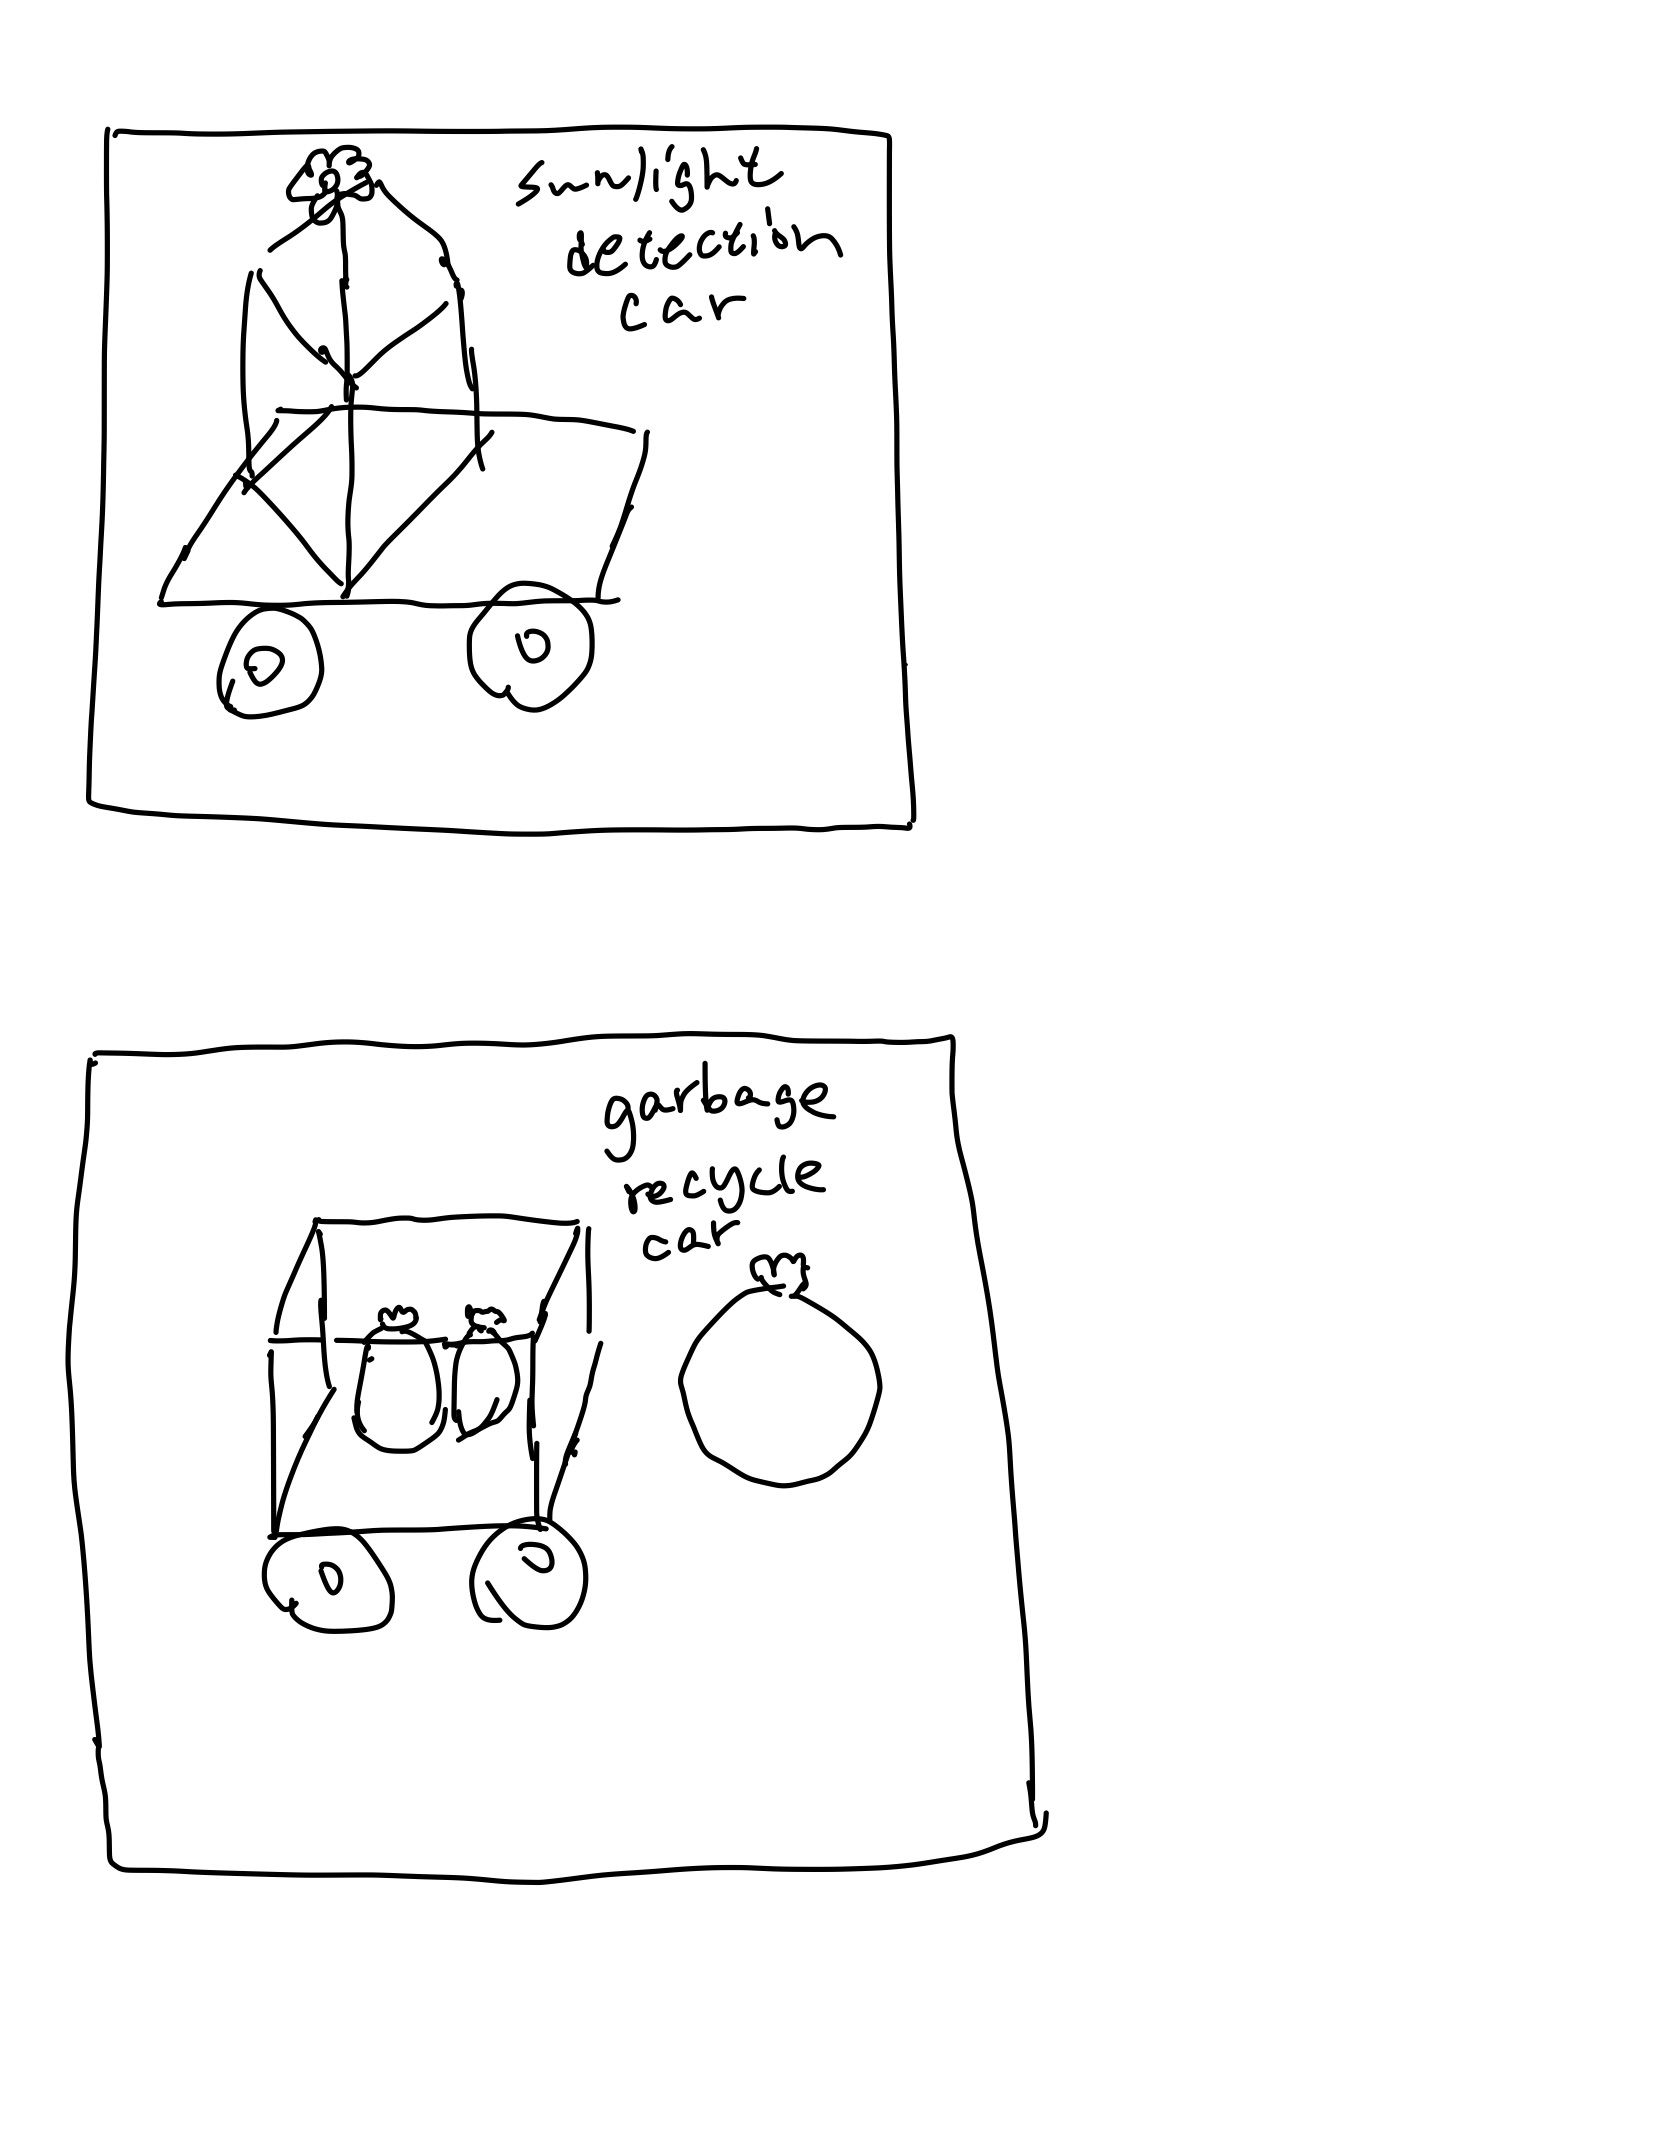 sunlight
detection
car
garbage
recycle
car